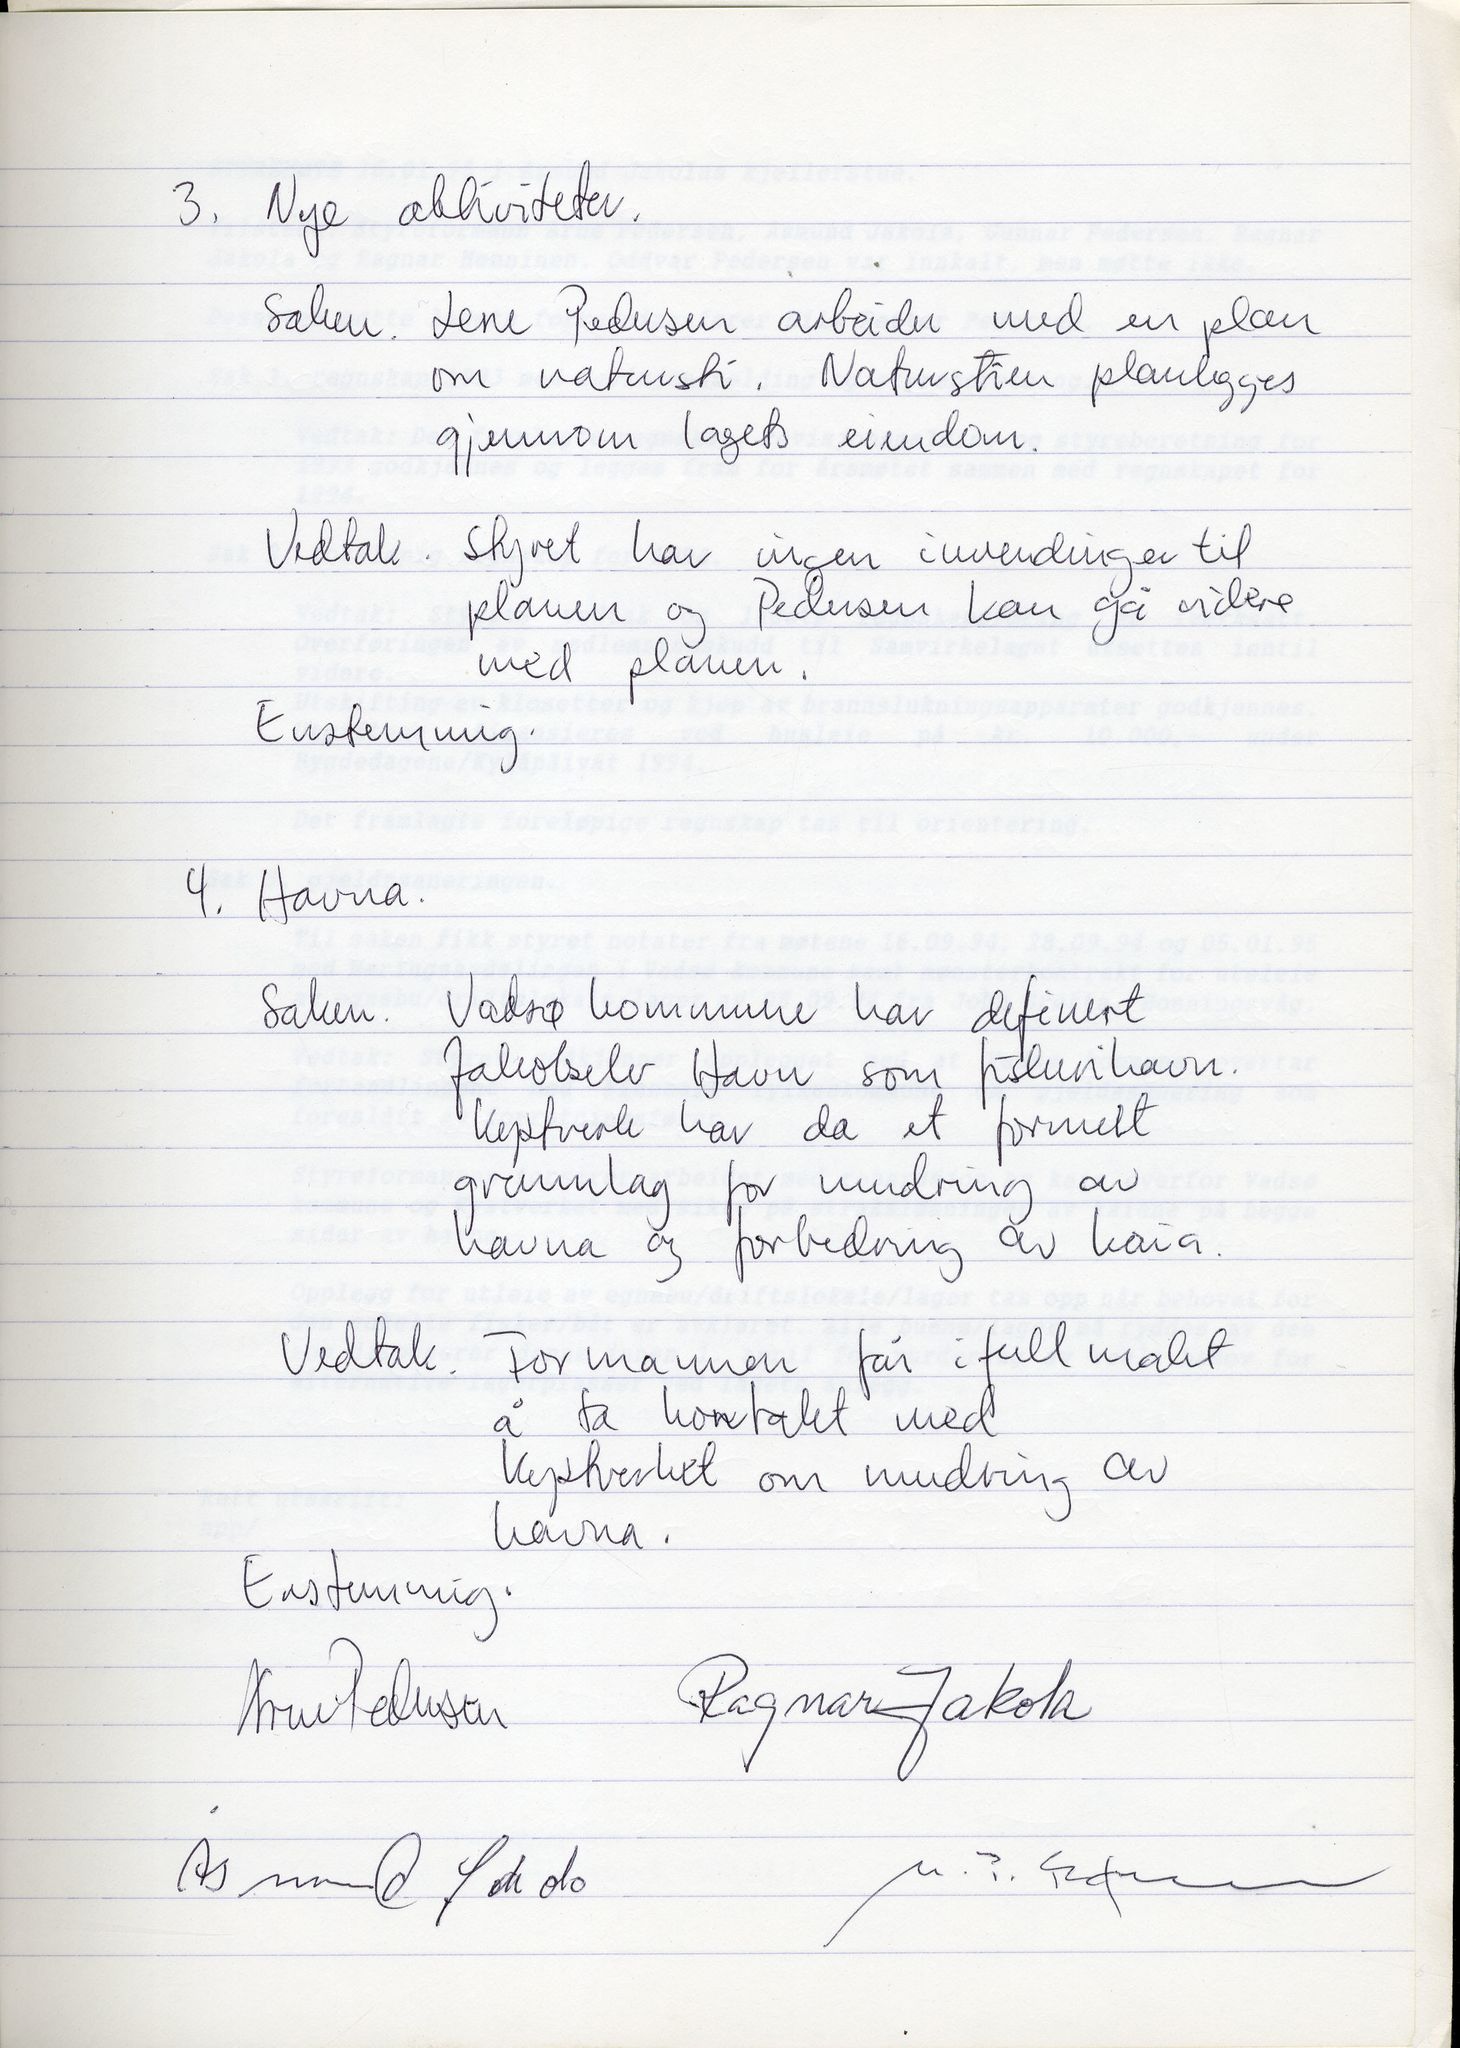 3. Nye aktiviteter.
Saken. Lene Pedersen arbeider med en plan
om natursti. Naturstien planlegges
gjennom lagets eiendom.
Vedtak. Styret har ingen invendinger til
planen og Pedersen kan gå videre
med planen.
Enstemmig.
4. Havna.
Saken. Vadsø kommune har definert
Jakobselv Havn som fiskerihavn.
Kystverk har da et formelt
grunnlag for mudring av
havna og forbedring av kaia.
Vedtak. Formannen får i full makt
å ta kontakt med
Kystverket om mudring av
havna.
Enstemmig.
Arne Pedersen Ragnar Jakola
Åsmund Jakola